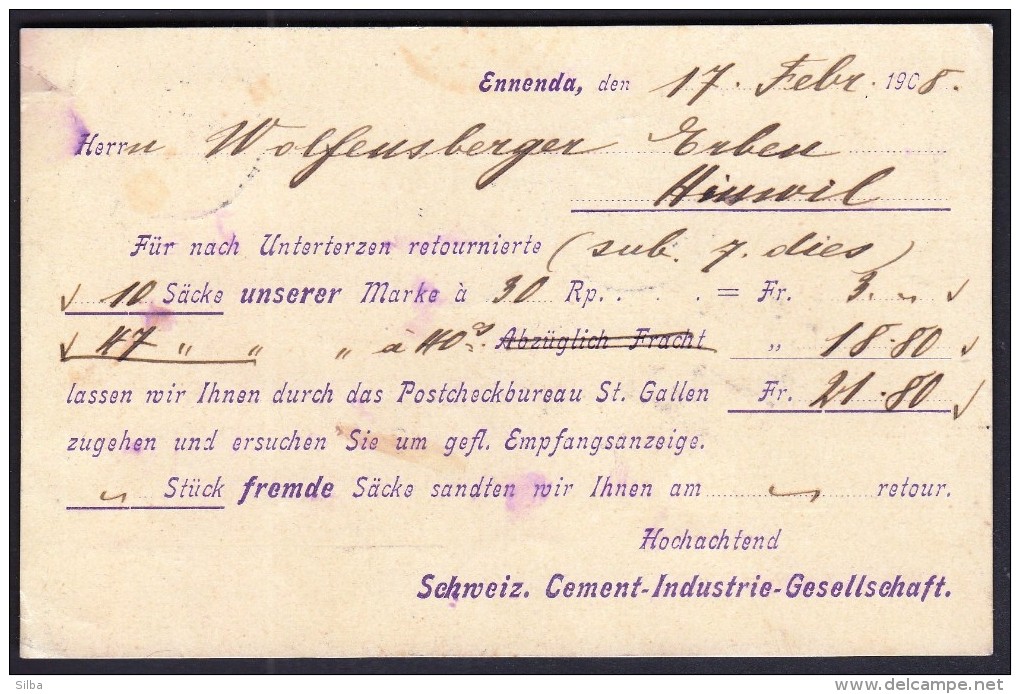 Ennenda, den 17. Febr. 1908.
Herrn Wolfensberger Erben
Hinwil
Für nach Unterterzen retournierte (sub. 7. dies)
√ 10 Säcke unserer Marke à 30 Rp. . . . = Fr. 3. „ √
√ 47 „ „ „ à 40 Abzüglich Fracht „ 18.80 √
lassen wir Ihnen durch das Postcheckbureau St. Gallen Fr. 21.80 √
zugehen und ersuchen Sie um gefl. Empfangsanzeige.
„ Stück fremde Säcke sandten wir Ihnen am „ retour.
Hochachtend
Schweiz. Cement-Industrie-Gesellschaft.
Silba
www.delcampe.net